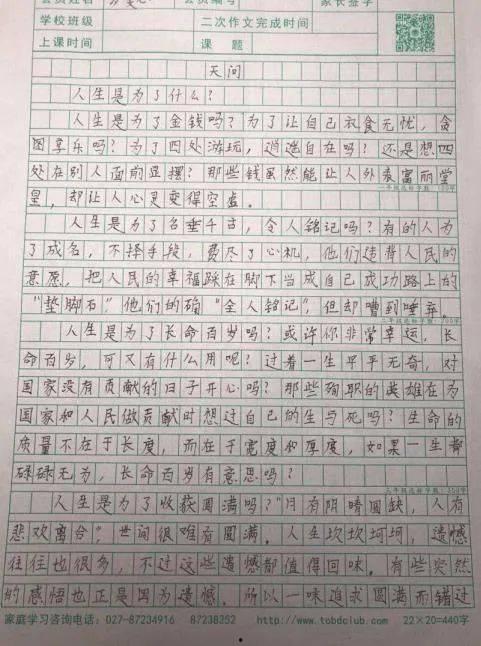 会员姓名 会员编号 家长签字
学校班级 二次作文完成时间
上课时间 课 题
天问
人生是为了什么?
人生是为了金钱吗?为了让自己衣食无忧,贪
图享乐吗?为了四处游玩,逍遥自在吗?还是想四
处在别人面前显摆?那些钱虽然能让人外表富丽堂
皇,却让人心灵变得空虚。
人生是为了名垂千古,令人铭记吗?有的人为
了成名,不择手段,费尽了心机,他们违背人民的
意愿,把人民的幸福踩在脚下当成自己成功路上的
“垫脚石”,他们的确“令人铭记”,但却嘈到唾弃。
人生是为了长命百岁吗?或许你非常幸运,长
命百岁,可又有什么用呢?过着一生平平无奇,对
国家没有贡献的日子开心吗?那些殉职的英雄在为
国家和人民做贡献时想过自己的生与死吗?生命的
质量不在于长度,而在于宽度和厚度,如果一生都
碌碌无为,长命百岁有意思吗?
人生是为了收获圆满吗?“月有阴晴圆缺,人有
悲欢离合”,世间很难有圆满。人生坎坎坷坷,遗憾
往往也很多,不过这些遗憾都值得回味。有些突然
的感悟也正是因为遗憾。所以一味追求圆满而错过
家庭学习咨询电话:027-87234916 87238252 http://www.tobdclub.com 22×20=440字